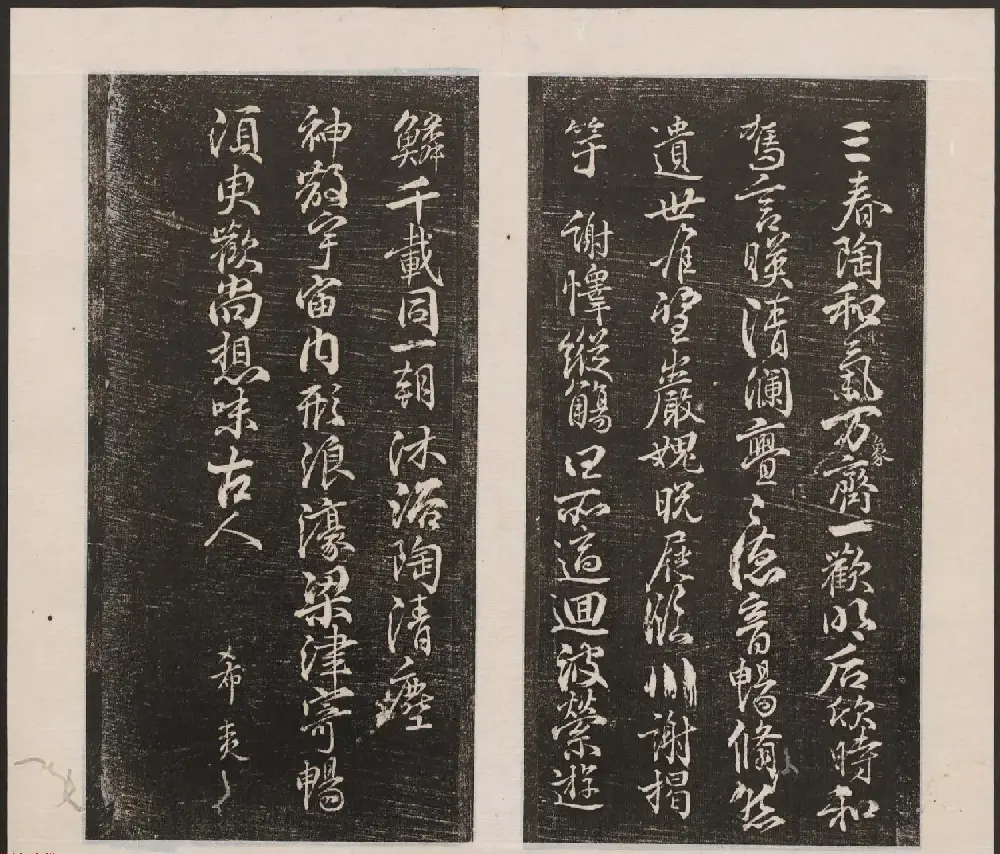 三春陶和氣万象齊一歡明后欣時和
駕言暎清瀾亹〻德音暢翛然
遺世難望巖愧脫屣臨川謝揭
竿 謝懌縱觴任所適迴波縈遊
鱗千載同一朝沐浴陶清塵
神散宇宙內形浪濠梁津寄暢
須臾歡尚想味古人